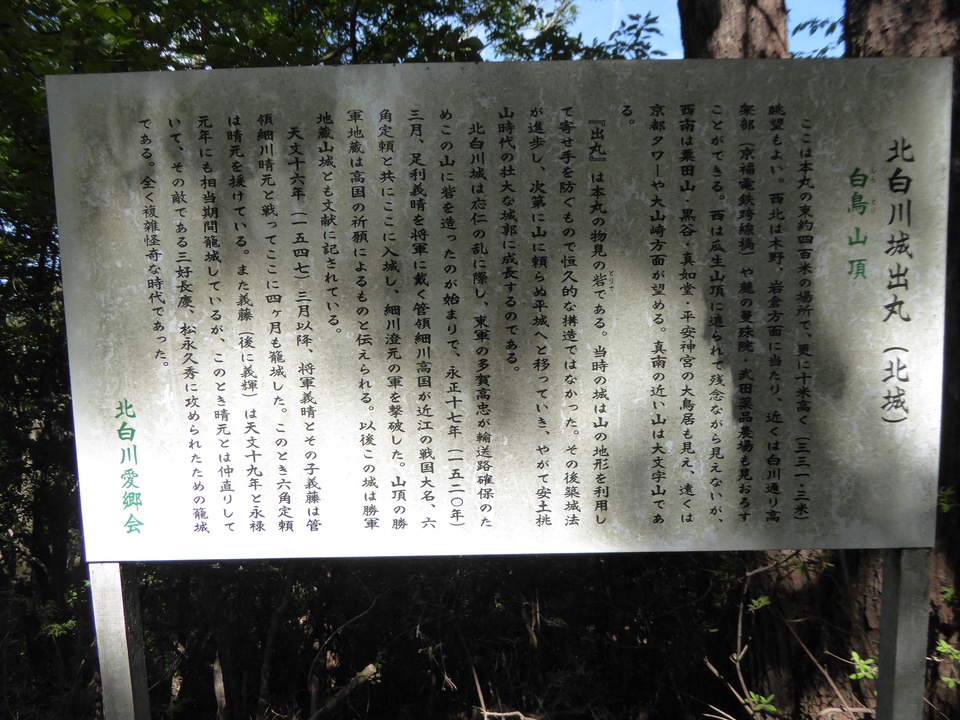 北白川城出丸（北城）
しらとり
白鳥山頂
ここは本丸の東約四百米の場所で、更に十米高く（三三一・三米）
眺望もよい。西北は木野、岩倉方面に当たり、近くは白川通り高
架部（京福電鉄跨線橋）や麓の曼殊院・武田薬品農場も見おろす
ことができる。西は瓜生山頂に遮られて残念ながら見えないが、
西南は粟田山・黒谷・真如堂・平安神宮の大鳥居も見え、遠くは
京都タワーや大山崎方面が望める。真南の近い山は大文字山であ
る。
『出丸』は本丸の物見の砦である。当時の城は山の地形を利用し
とりで
て寄せ手を防ぐもので恒久的な構造ではなかった。その後築城法
が進歩し、次第に山に頼らぬ平城へと移っていき、やがて安土桃
山時代の壮大な城郭に成長するのである。
北白川城は応仁の乱に際し、東軍の多賀高忠が輸送路確保のた
めこの山に砦を造ったのが始まりで、永正十七年（一五二〇年）
三月、足利義晴を将軍に戴く管領細川高国が近江の戦国大名、六
角定頼と共にここに入城し、細川澄元の軍を撃破した。山頂の勝
軍地蔵は高国の祈願によるものと伝えられる。以後この城は勝軍
地蔵山城とも文献に記されている。
天文十六年（一五四七）三月以降、将軍義晴とその子義藤は管
領細川晴元と戦ってここに四ヶ月も籠城した。このとき六角定頼
は晴元を援けている。また義藤（後に義輝）は天文十九年と永禄
元年にも相当期間籠城しているが、このとき晴元とは仲直りして
いて、その敵である三好長慶、松永久秀に攻められたための籠城
である。全く複雑怪奇な時代であった。
北白川愛郷会